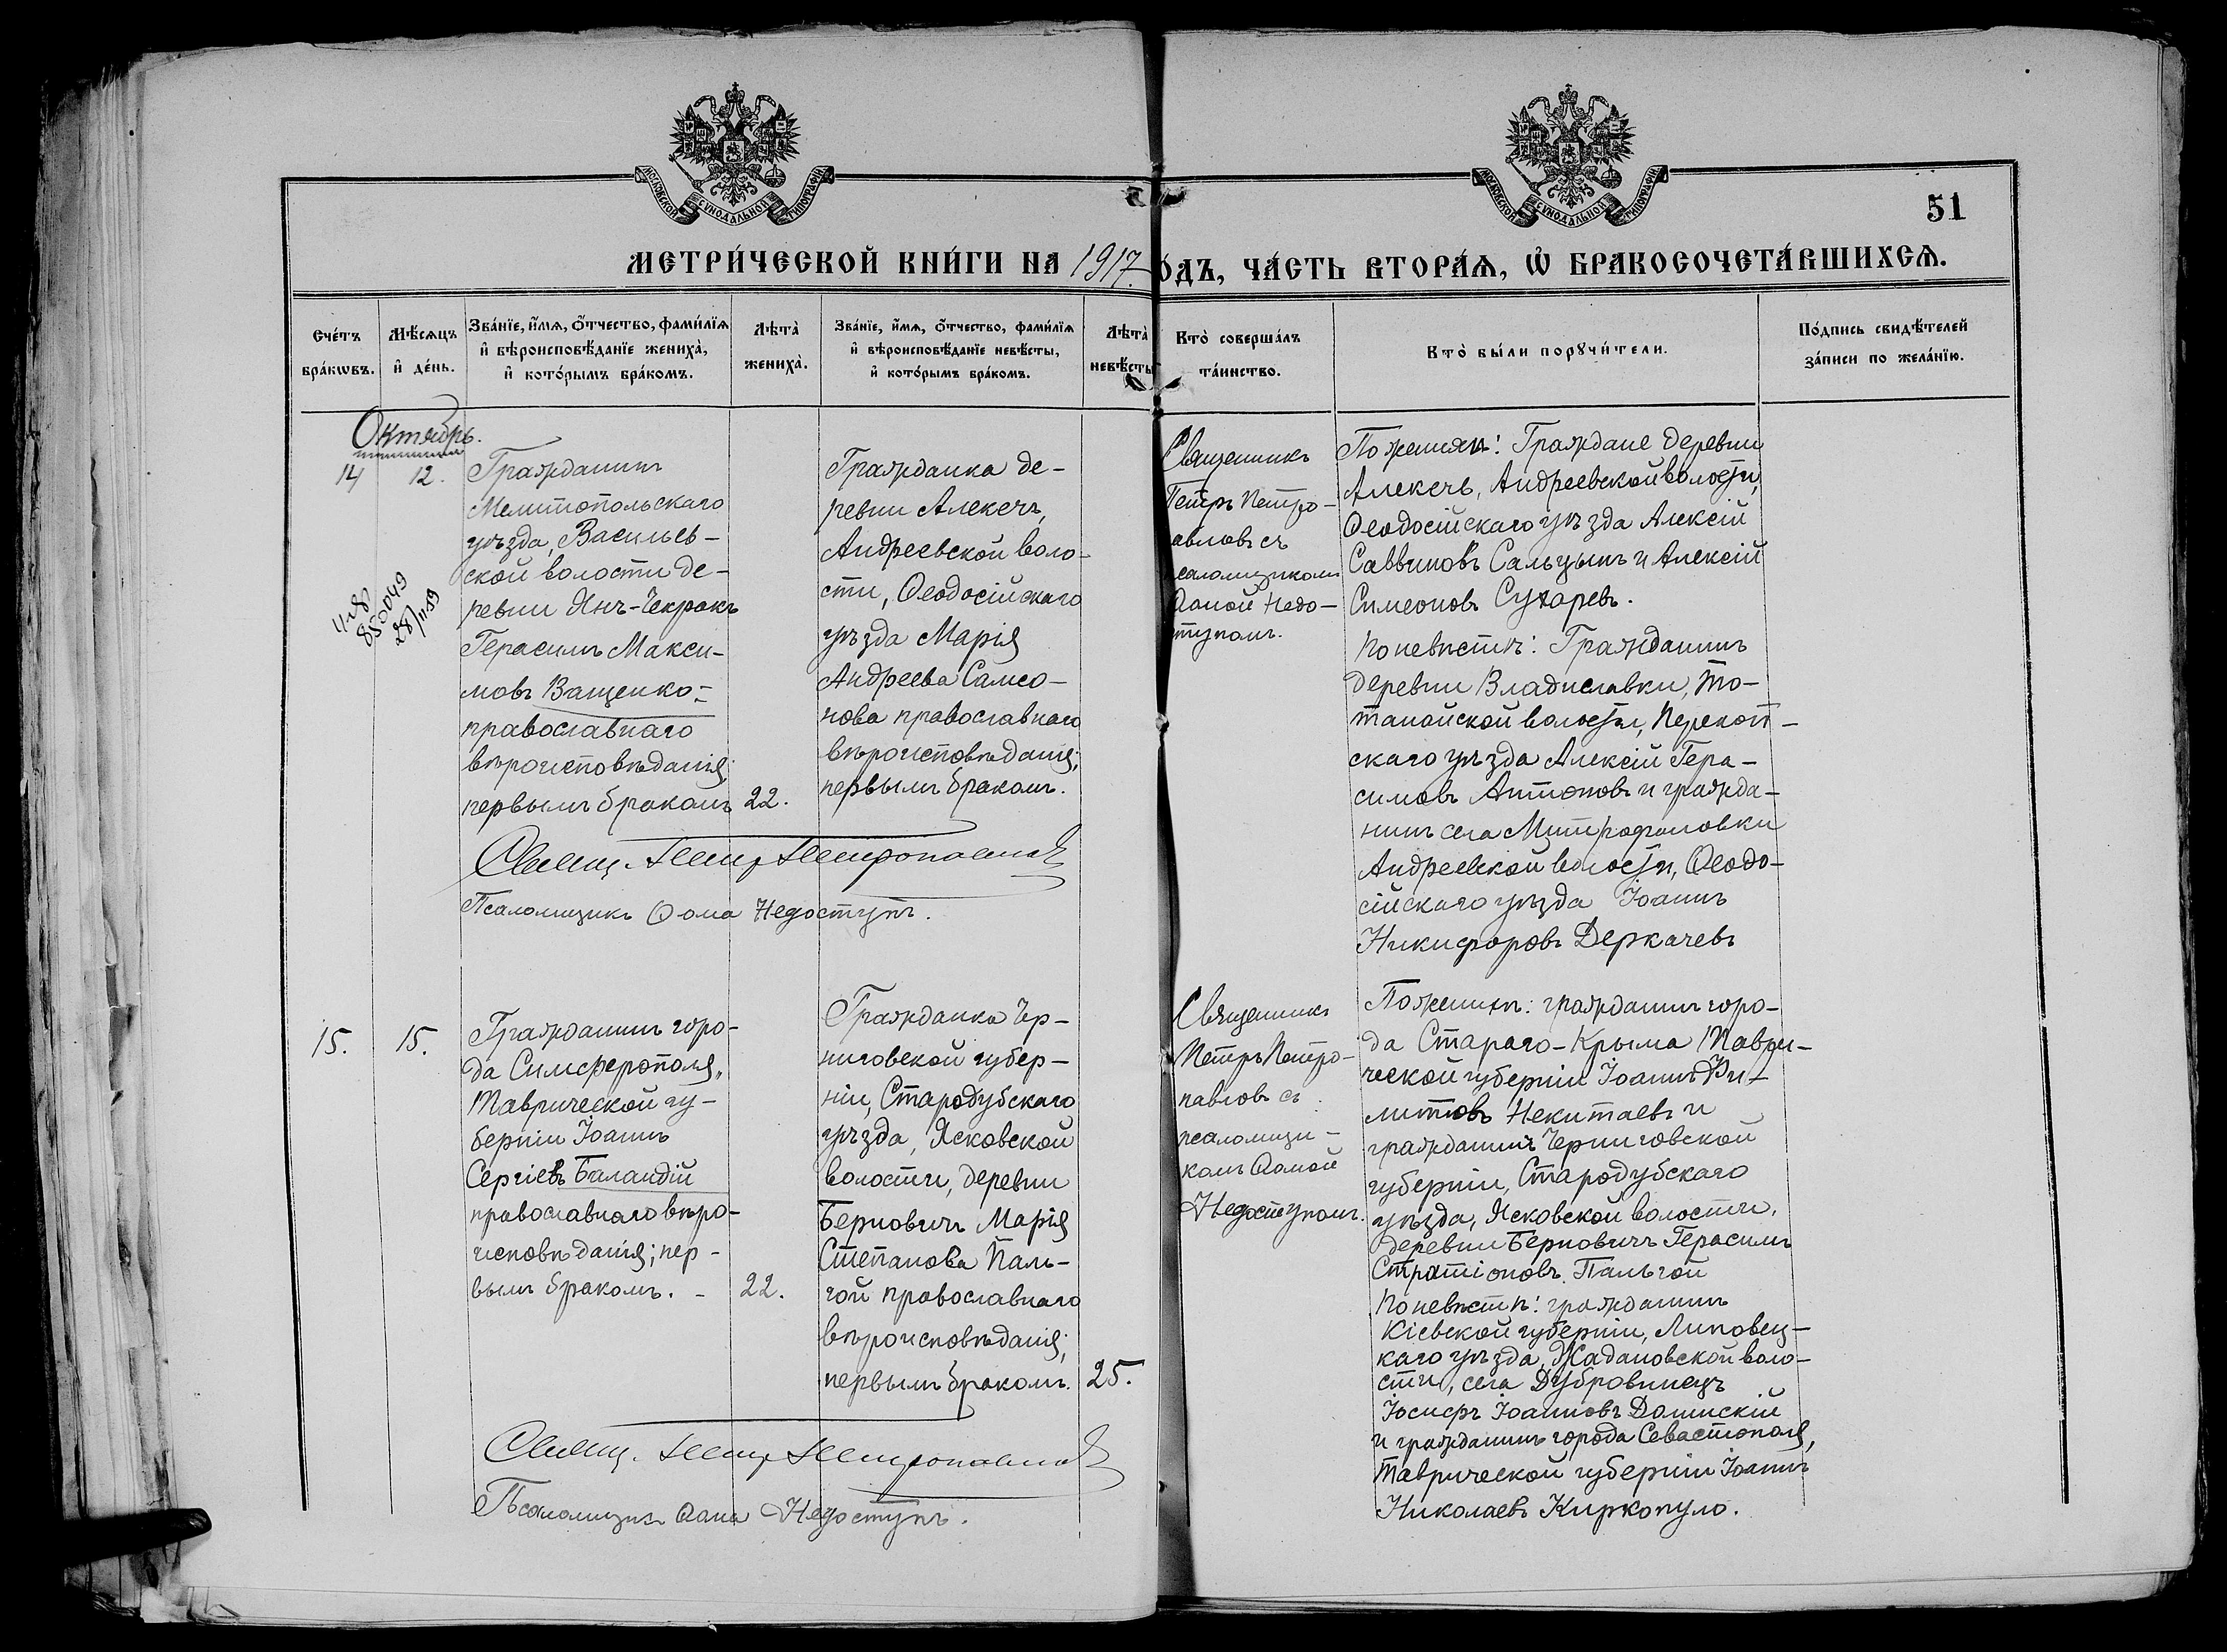 МОСКОВСКОЙ СѴНОДАЛЬНОЙ ТИПОГРАФІИ
МОСКОВСКОЙ СѴНОДАЛЬНОЙ ТИПОГРАФІИ
51
МЕТРИ́ЧЕСКОЙ КНИ́ГИ НА 1917 ОДЪ, ЧА́СТЬ ВТОРА́Ѧ, Ѡ҆ БРАКОСОЧЕТА́ВШИХСѦ.
Сче́тъ бра́кѡвъ.
Мѣ́сѧцъ и҆ де́нь.
Зва́нїе, и҆́мѧ, ѻ҆́тчество, фами́лїѧ и҆ вѣроисповѣ́данїе жениха̀, и҆ кото́рымъ бра́комъ.
Лѣта̀ жениха̀.
Зва́нїе, и҆́мѧ, ѻ҆́тчество, фами́лїѧ и҆ вѣроисповѣ́данїе невѣ́сты, и҆ кото́рымъ бра́комъ.
Лѣта̀ невѣ́сты
Кто̀ соверша́лъ та́инство.
Кто̀ бы́ли порꙋчи́тели.
По́дпись свидѣ́телей за́писи по жела́нїю.
Октябрь.
14
12.
850049
28/II 59
Гражданинъ
Мелитопольскаго
уѣзда, Васильев-
ской волости де-
ревни Янч-Чекракъ
Герасимъ Макси-
мовъ Ващенко-
православнаго
вѣроисповѣданія;
первымъ бракомъ
22.
Гражданка де-
ревни Алекечъ,
Андреевской воло-
сти, Ѳеодосійскаго
уѣзда Марія
Андреева Самсо-
нова православнаго
вѣроисповѣданія;
первымъ бракомъ.
Священникъ
Петръ Петро-
авловъ съ
псаломщикомъ
Ѳомой Недо-
ступомъ.
По женихѣ: Граждане деревни
Алекечь, Андреевской волости,
Ѳеодосійскаго уѣзда Алексій
Саввиновъ Сальцынъ и Алексій
Симеоновъ Сухаревъ.
По невѣстѣ: Гражданинъ
деревни Владиславки, То-
танайской волости, Перекоп-
скаго уѣзда Алексій Гера-
симовъ Антоновъ и гражда-
нинъ села Митрофановки
Андреевской волости, Ѳеодо-
сійскаго уѣзда Іоаннъ
Никифоровъ Деркачевъ
Свящ. Петръ Петропавловъ
Псаломщикъ Ѳома Недоступъ.
15.
15.
Гражданинъ горо-
да Симферополя,
Таврической гу-
берніи Іоаннъ
Сергіевъ Баландій
православнаго вѣро-
исповѣданія; пер-
вымъ бракомъ. -
22.
Гражданка Чер-
ниговской губер-
ніи, Стародубскаго
уѣзда, Ясковской
волости, деревни
Берновичъ Марія
Степанова Паль-
гой православнаго
вѣроисповѣданія;
первымъ бракомъ.
25.
Священникъ
Петръ Петро-
павловъ съ
псаломщи-
комъ Ѳомой
Недоступомъ.
По женихѣ: гражданинъ горо-
да Стараго-Крыма Таври-
ческой губерніи Іоаннъ Фи-
литовъ Некитаевъ и
гражданинъ Черниговской
губерніи, Стародубскаго
уѣзда, Ясковской волости,
деревни Берновичъ Герасимъ
Стратіоновъ Пальгой
По невѣстѣ: гражданинъ
Кіевской губерніи, Липовец-
каго уѣзда, Жадановской воло-
сти, села Дубровинецъ
Іосифъ Іоанновъ Долинскій
и гражданинъ города Севастополя,
Таврической губерніи Іоаннъ
Николаевъ Киркопуло.
Свящ. Петръ Петропавловъ
Псаломщикъ Ѳома Недоступъ.